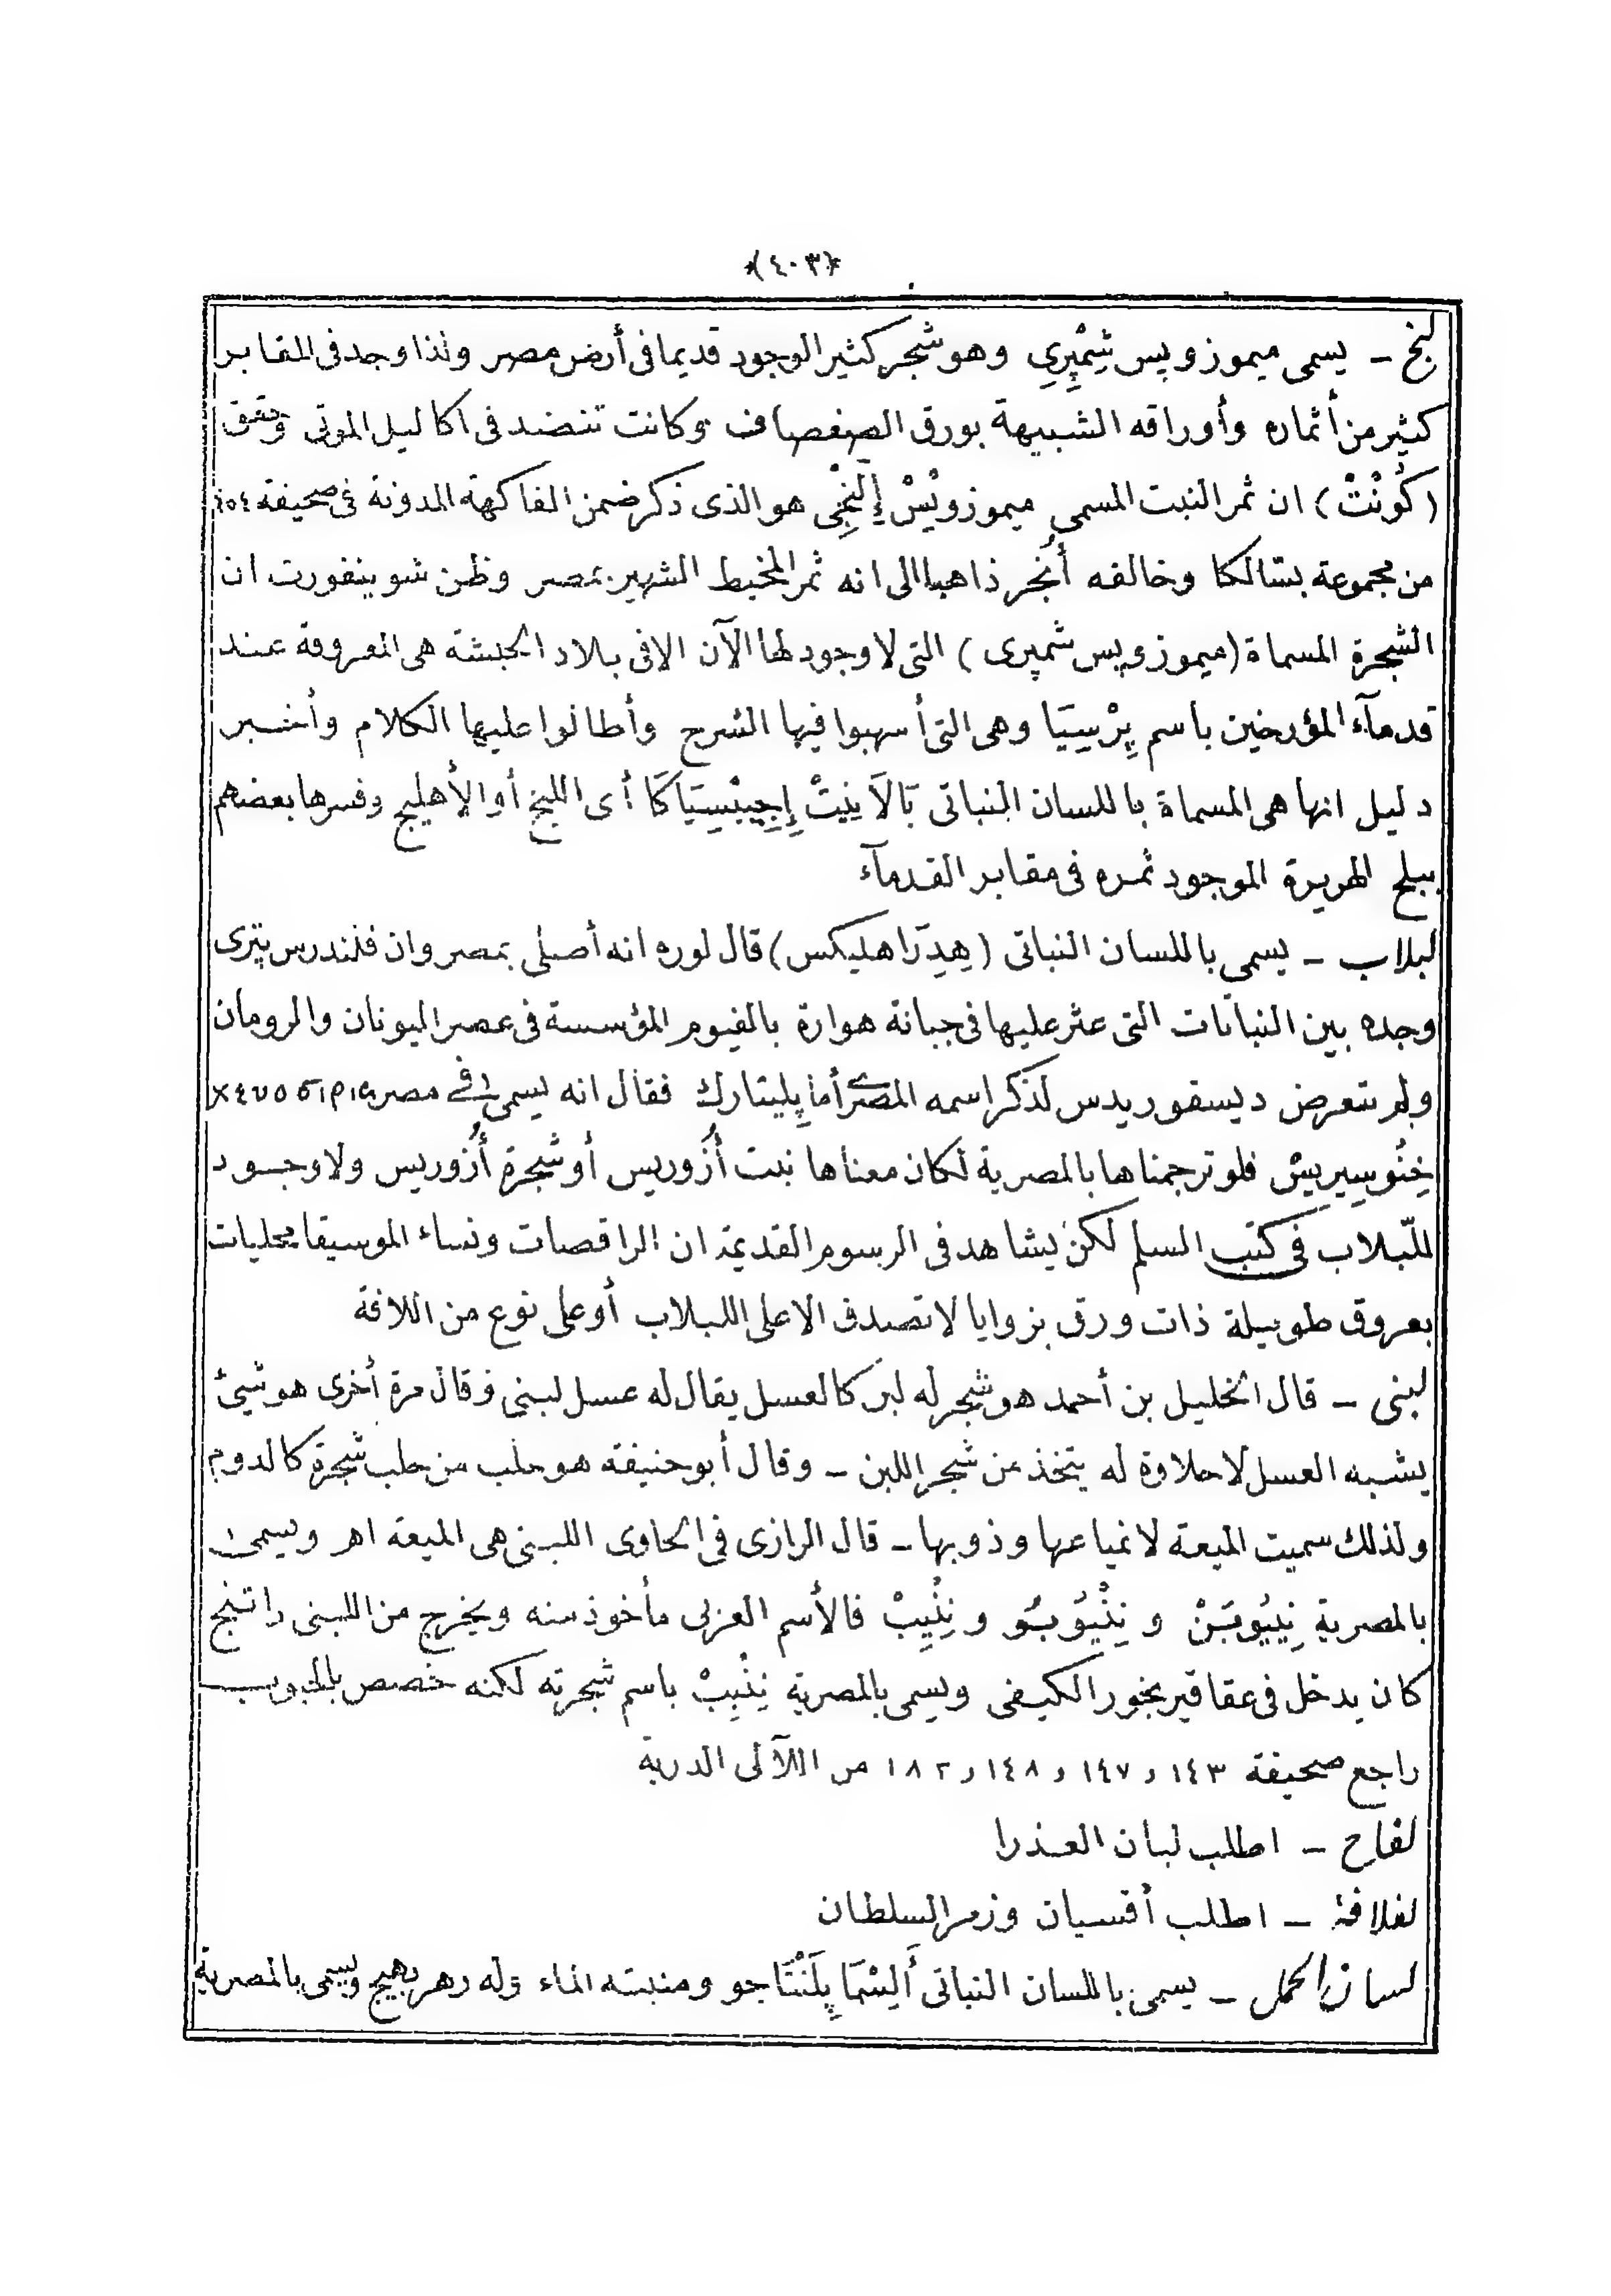 *(٤٠٣)*
لبخ – يسمى ميموزوپس شِمْپِرِي وهو شجر كثير الوجود قديما فى أرض مصر ولذا وجد فى المقابر
كثير من أثماره وأوراقه الشبيهة بورق الصفصاف وكانت تنضد فى اكاليل الموتى وحقق
(كُونْتْ) ان ثمر النبت المسمى ميموزوپْسْ إِلَنْجِى هو الذى ذكر ضمن الفاكهة المدونة فى صحيفة ٦٥٤
من مجموعة بستالكا وخالفه أُنْجر ذاهبا الى انه ثمر المخيط الشهير بمصر وظن شوينفورت ان
الشجرة المسماة (ميموزوپس شمپرى) التى لا وجود لها الآن الا فى بلاد الحبشة هى المعروفة عند
قدمآء المؤرخين باسم پِرْسِيَا وهى التى أسهبوا فيها الشرح وأطالوا عليها الكلام وأخبر
دليل انها هى المسماة باللسان النباتى بَالاَنِيتْ إِجِيبْسِيَاكَا أى اللبخ أو الأهليج وفسرها بعضهم
ببلح الهريرة الموجود ثمره فى مقابر القدمآء
لبلاب – يسمى باللسان النباتى (هِدِرَا هليكس) قال لوره انه أصلى بمصر وان فلندرس پترى
وجده بين النباتات التى عثر عليها فى جبانة هوارة بالفيوم المؤسسة فى عصر اليونان والرومان
ولم يتعرض ديسقوريدس لذكر اسمه المصرى أما پليتارك فقال انه يسمى فى مصر
خِنُوسِيرِيسْ فلو ترجمناها بالمصرية لكان معناها نبت أُزوريس أو شجرة أُزوريس ولا وجود
للّبلاب فى كتب السلم لكن يشاهد فى الرسوم القديمة ان الراقصات ونساء الموسيقا محليات
بعروق طويلة ذات ورق بزوايا لا تصدف الا على اللبلاب أو على نوع من اللافة
لبنى – قال الخليل بن أحمد هو شجر له لبن كالعسل يقال له عسل لبنى وقال مرة أخرى هو شيئ
يشبه العسل لا حلاوة له يتخذ من شجر اللبن – وقال أبو حنيفة هو حلب من حلب شجرة كالدوم
ولذلك سميت الميعة لانمياعها وذوبها – قال الرازى فى الحاوى اللبنى هى الميعة اهـ ويسمى
بالمصرية نِيبُوبَنْ و نِنْيُوبُو و نِنِيبْ فالأسم العربى مأخوذ منه ويخرج من اللبنى راتنج
كان يدخل فى عقاقير بخور الكيفى ويسمى بالمصرية نِنِيبْ باسم شجرته لكنه خصص بالحبوب
راجع صحيفة ١٤٣ و ١٤٧ و ١٤٨ و ١٨٢ من اللآلى الدرية
لفاح – اطلب لبان العذرا
لفلافة – اطلب أقسيان وزمر السلطان
لسان الحمل – يسمى باللسان النباتى أَلِسْمَا پِلَنْتَاجو ومنبته الماء وله زهر بهيج ويسمى بالمصرية